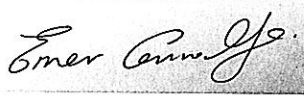 Emer Connolly.